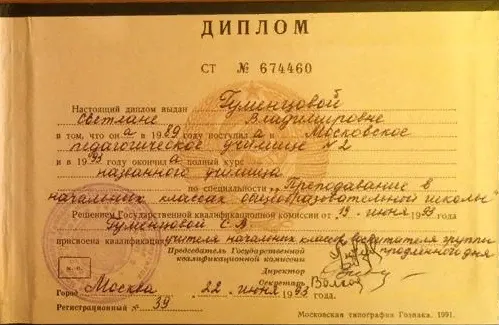 ДИПЛОМ
СТ № 674460
Настоящий диплом выдан Гуменцовой
Светлане Владимировне
в том, что она в 1989 году поступила в Московское
педагогическое училище № 2
и в 1993 году окончила полный курс
названного училища
по специальности Преподавание в
начальных классах общеобразовательной школы
Решением Государственной квалификационной комиссии от 15 июня 1993 года
Гуменцовой С.В.
присвоена квалификация учителя начальных классов, воспитателя группы
продлённого дня
Председатель Государственной
квалификационной комиссии
Директор
Секретарь
Город Москва 22 июня 1993 года
Регистрационный № 39
М. П.
Московская типография Гознака. 1991.